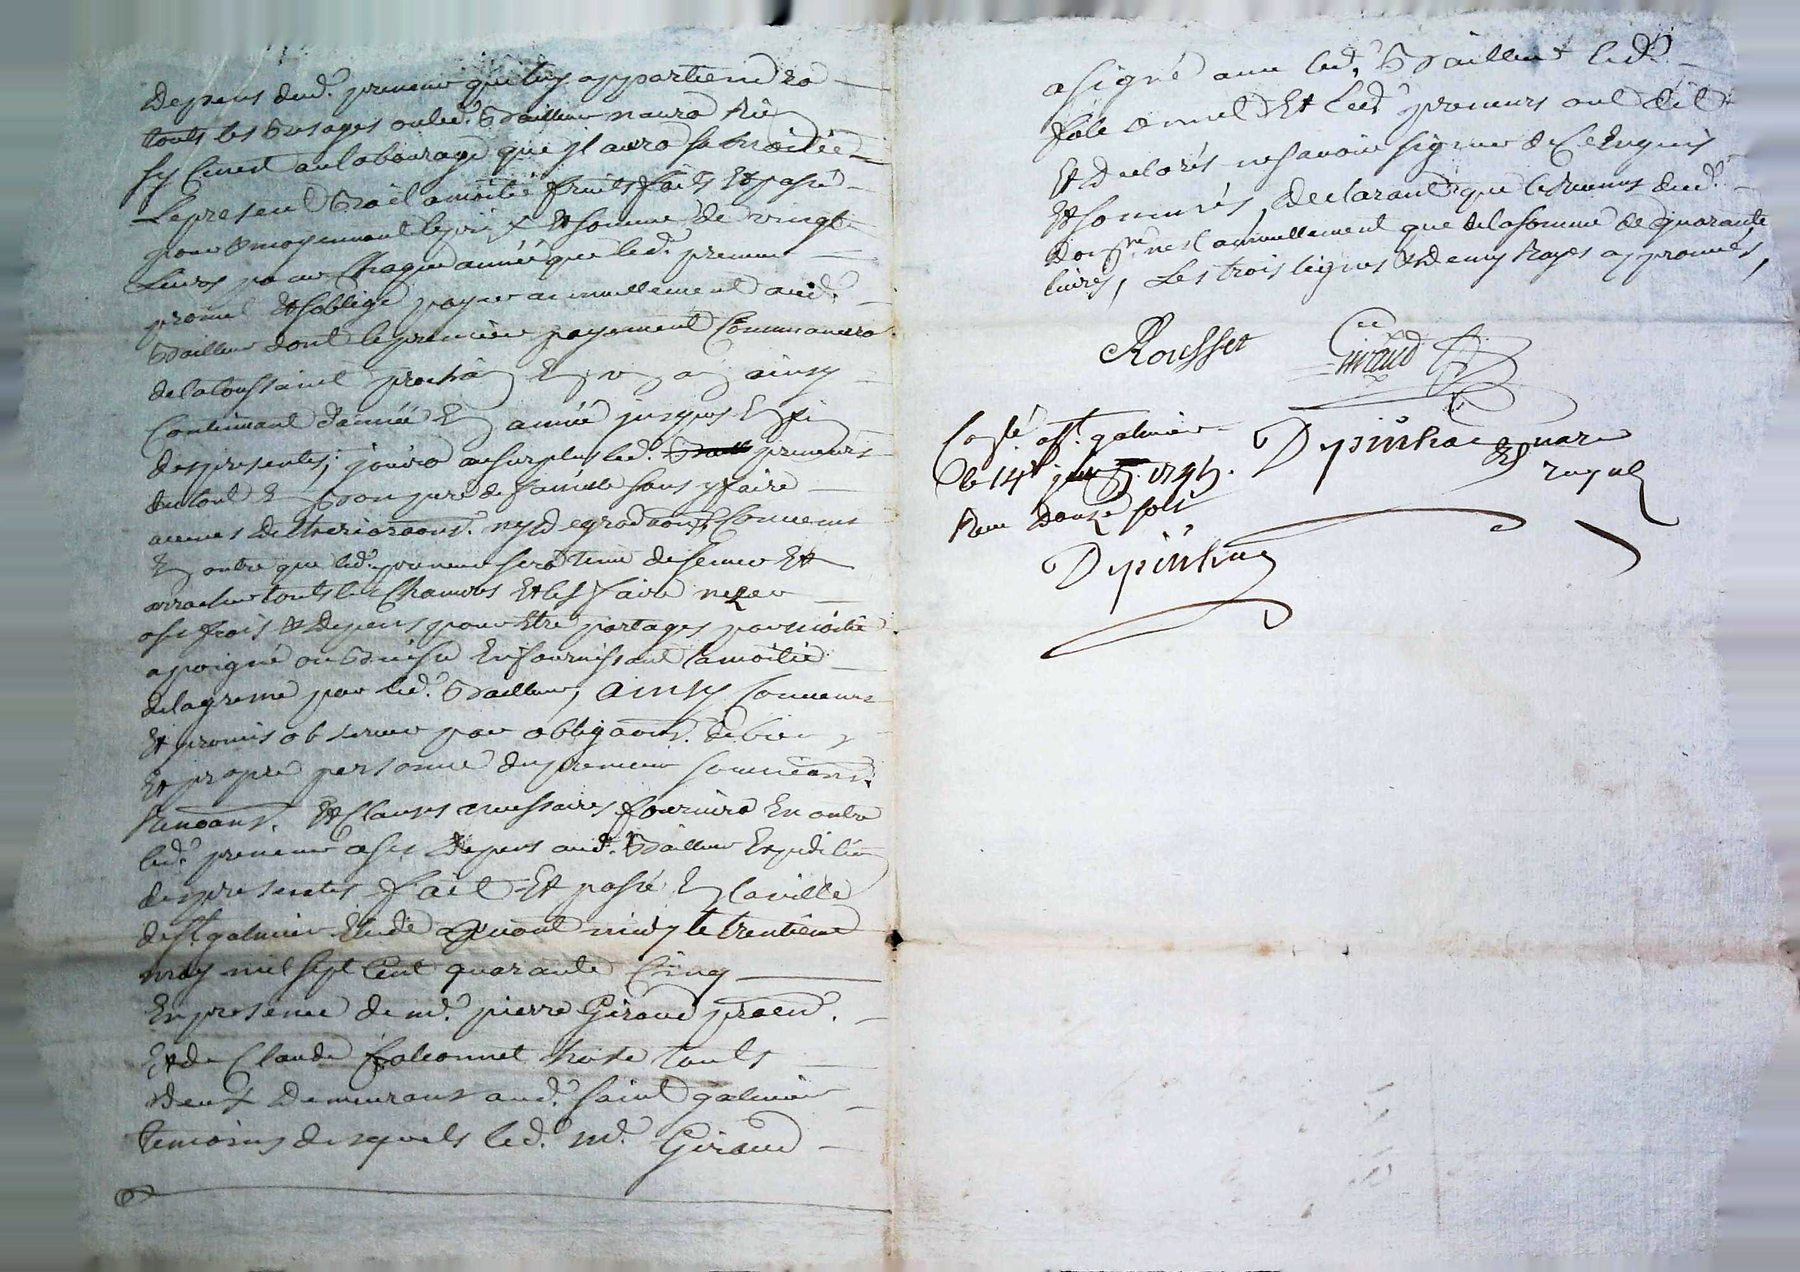 depens dud.t preneur quil luy appartiendra
touts les usages ou led.t Bailleur naura rie
sy cenest au labourage que jl aura sa moitiée
Le present Bail a moitié fruits faits Et passé
pour & moyennant le prix Et somme de vingt
Livres pour Chaque année que led.t preneur
promet Et soblige payer annuellement aud.t
Bailleur dont le premier payement Commancera
de la toussaint prochã En un an ainsy
Continuant dannée En année jusques En fin
des presentes; jouira au surplus led. preneurs
du tout En bon pere de famille sans y faire
aucunes detherioraõns. ny degradaõns Convenu
En outre que led.t preneur sera tenu de semer Et
arracher touts les Chanvres Et les faire nezer
a ses frois & depens pour Etre partages par moitié
a poigné ou Bruise En fournissant la moitié
de la grene par led.t Bailleur, ainsy Convenu
Et promis observer par obligaõns. de biens
Et propre personne du preneur soumiõns.
Renõans. Et clauses necessaires fournira En outre
led.t preneur a ses depens aud.t Bailleur Expedition
des presentes fait Et passé En la ville
de st galmier Etude avant midy le trentieme
may mil sept Cent quarante Cinq
En presence de m.e pierre Giraud
Et de Claude falconnet touts
deux demeurans aud.t saint galmier
temoins desquels led.t m.e Giraud
a signé avec led.t Bailleur led.t
falconnet Et led.t preneurs ont dit
Et declarés ne savoir signer de ce Enquis
Et sommés, declarant que le revenus dud.t
dom.ne nest annuellement que de la somme de quarante
livres, Les trois lignes & demy Rayés approuvés,
Rousset Giraud
Con.lé a st. galmier Depinhac notaire
le 14e juin 1745. royal
Reçu douze sols
Depinhac